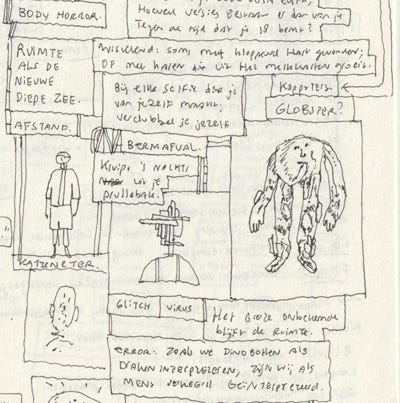 BODY HORROR.
Hoeveel versies bestaan er dan van je
Tegen de tijd dat je 18 bent?
RUIMTE
ALS DE
NIEUWE
DIEPE ZEE.
Wisselend: soms met kloppend hart
OF met haren die uit het
Bij elke selfie die je
van jezelf maakt,
verdubbel je jezelf
KOPPOTERS.
GLOBSTER?
AFSTAND.
BERMAFVAL.
Kruipt 's NACHTS
uit je
prullebak.
KATJUNCTER.
GLITCH VIRUS
Het Grote Onbekende
blijft de Ruimte.
ERROR: ZOALS WE DINOBOTTEN ALS
DRAKEN INTERPRETEREN, ZIJN WIJ ALS
MENS GEÏNTERPRETEERD.